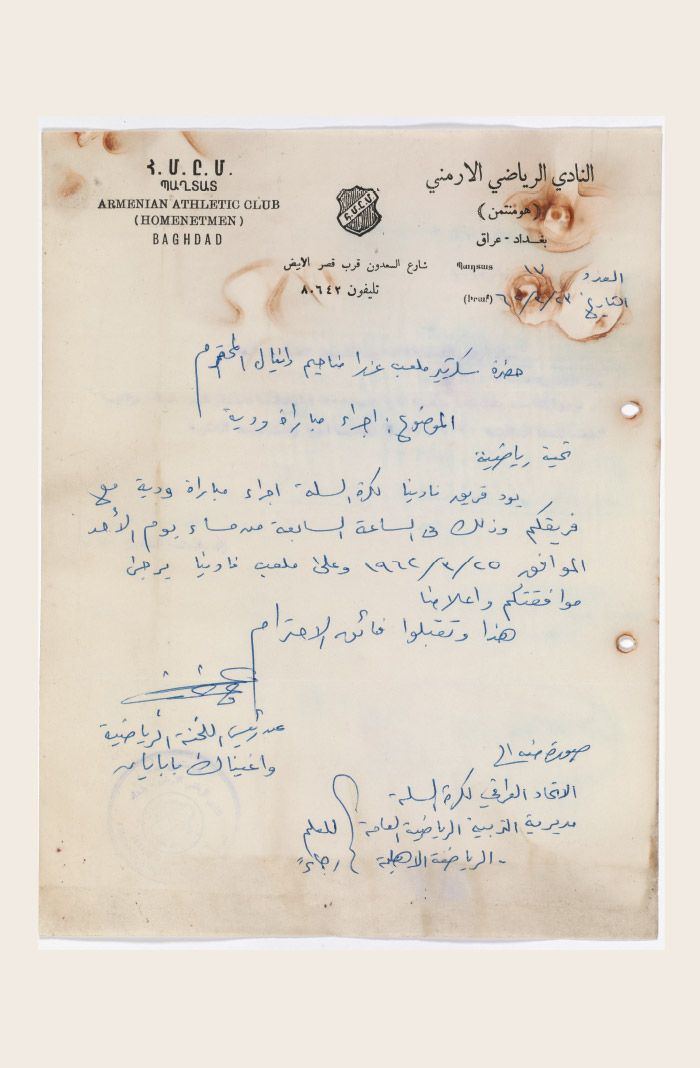 Հ. Մ. Ը. Մ.
ՊԱՂՏԱՏ
ARMENIAN ATHLETIC CLUB
(HOMENETMEN)
BAGHDAD
Հ.Մ.Ը.Մ.
النادي الرياضي الارمني
(هومنتمن)
بغداد - عراق
شارع السعدون قرب قصر الابيض
تليفون ٨٠٦٤٢
Պաղտատ
(Իրաք)
العدد ١٧
التاريخ
حضرة سكرتير ملعب عزرا مناحيم دانيال المحترم
الموضوع: اجراء مباراة ودية
تحية رياضية
يود فريق نادينا لكرة السلة اجراء مباراة ودية مع
فريقكم وذلك في الساعة السابعة من مساء يوم الأحد
الموافق ٢٥/٣/١٩٦٢ وعلى ملعب نادينا يرجى
موافقتكم واعلامنا
هذا وتقبلوا فائق الاحترام
عن رئيس اللجنة الرياضية
صورة منه الى
الاتحاد العراقي لكرة السلة
مديرية التربية الرياضية العامة
- الرياضة الاهلية
للعلم
رجاءً